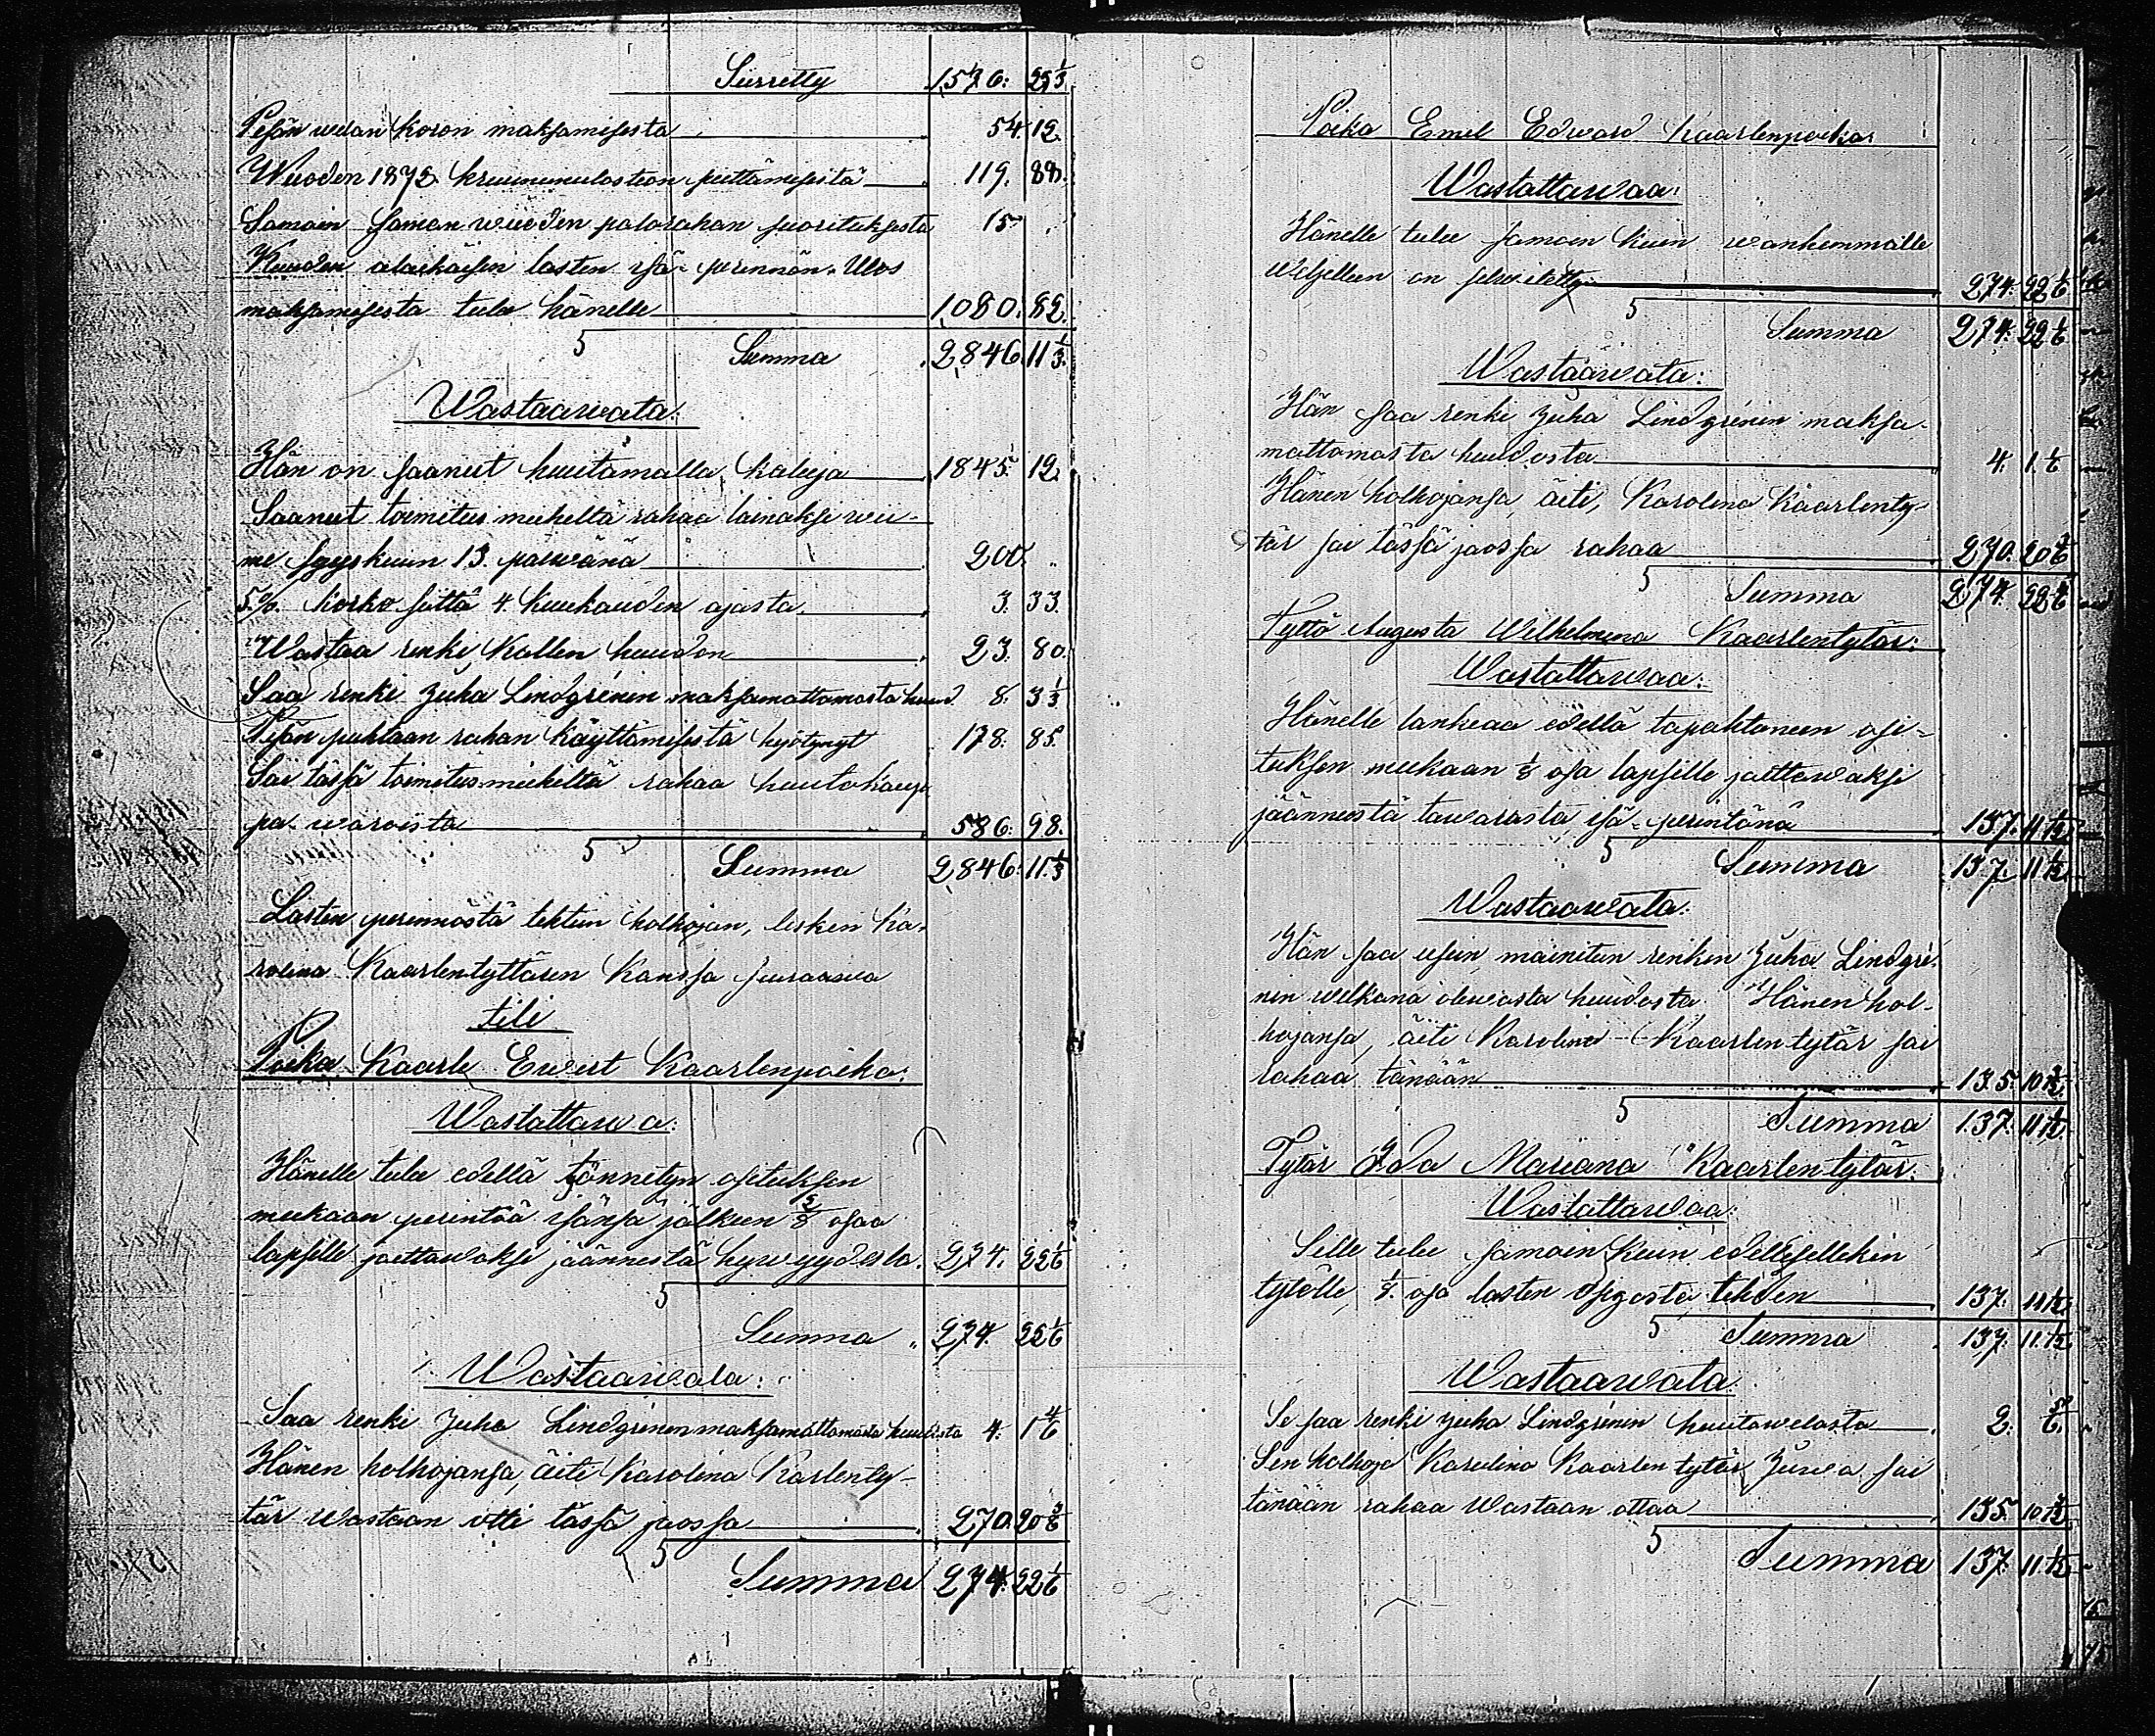 Siirretty 1,576: 29 1/3
Pesän velan koron maksamisesta 54. 12.
Wuoden 1872 kruununulosteon suittämisestä 119. 88.
Samoin saman wuoden palorahan suorituksesta 15
Kuuden alaikäisen lasten isä-perinnön. Ulos
maksamisesta tulee hänelle 1,080. 82.
5 Summa 2,846. 11 1/3.
Wastaawata:
Hän on saanut huutamalla kaluja 1845. 12.
Saanut toimitus mieheltä rahaa lainaksi wii-
me syyskuun 13. päiwänä 200.
5.%. korko siitä 4. kuukauden ajasta 3. 33.
Wastaa renki Kallen huudon 23. 80.
Saa renki Juha Lindgrénin maksamattomasta huud 8. 3 1/3
Pesän puhtaan rahan käyttämisestä hyötynyt 178. 85.
Sai tässä toimitusmieheltä rahaa huutokaup-
pa waroista 586. 98.
5 Summa 2,846. 11 1/3
Lasten perinnöstä tehtiin holhojan, lesken Ka-
rolina Kaarlentyttären kanssa seuraawa
tili
Poika Kaarle Ewert Kaarlenpoika:
Wastattawa:
Hänelle tulee edellä tönnetyn osituksen
mukaan perintöä isänsä jälkeen 2/8 osaa
lapsille jaettawaksi jäännestä hywyydestä. 274. 22 1/6
5
Summa 274. 22 1/6
Wastaawata:
Saa renki Juha Lindgrénin maksamattomasta huudosta 4. 1 4/6
Hänen holhojansa, äiti Karolina Karlenty-
tär wastaan otti tässä jaossa 270. 20 3/6
5
Summa 274. 22 1/6
Poika Emil Edvard Kaarlenpoika:
Wastattawaa:
Hänelle tulee samoin kuin wanhemmalle
weljelleen on selwitetty 274. 22 1/6
5 Summa 274. 22 1/6
Wastaawata:
Hän saa renki Juha Lindgrénin maksa-
mattomasta huudosta 4. 1. 4/6
Hänen holhojansa, äiti, Karolina Kaarlenty-
tär sai tässä jaossa rahaa 270. 20 3/6
5 Summa 274. 22 1/6
Tyttö Augusta Wilhelmina Kaarlentytär:
Wastattawaa:
Hänelle lankeaa edellä tapahtuneen osi-
tuksen mukaan 1/8 osa lapsille jaettawaksi
jäänneestä tawarasta, isä-perintönä 137. 11 1/12
5 Summa 137. 11 1/12
Wastaawata:
Hän saa usein mainitun renkin Juha Lindgré-
nin welkana olewasta huudosta Hänen hol-
hojansa, äiti Karolina Kaarlentytär sai
rahaa tänään 135. 10 3/12
5 Summa 137. 11 1/12
Tytär Ida Mariana Kaarlentytär:
Wastattawaa:
Sille tulee samoin kuin edellisellekin
tytölle 1/8. osa lasten osgosta tehden 137. 11 1/12
5 Summa 137. 11. 1/12
Wastaawata
Se saa renki Juha Lindgrénin huutowelasta 2. 5/6.
Sen holhoja Karolina Kaarlentytär Juwa sai
tänään rahaa wastaan ottaa 135. 10 3/12
5
Summa 137. 11 1/12